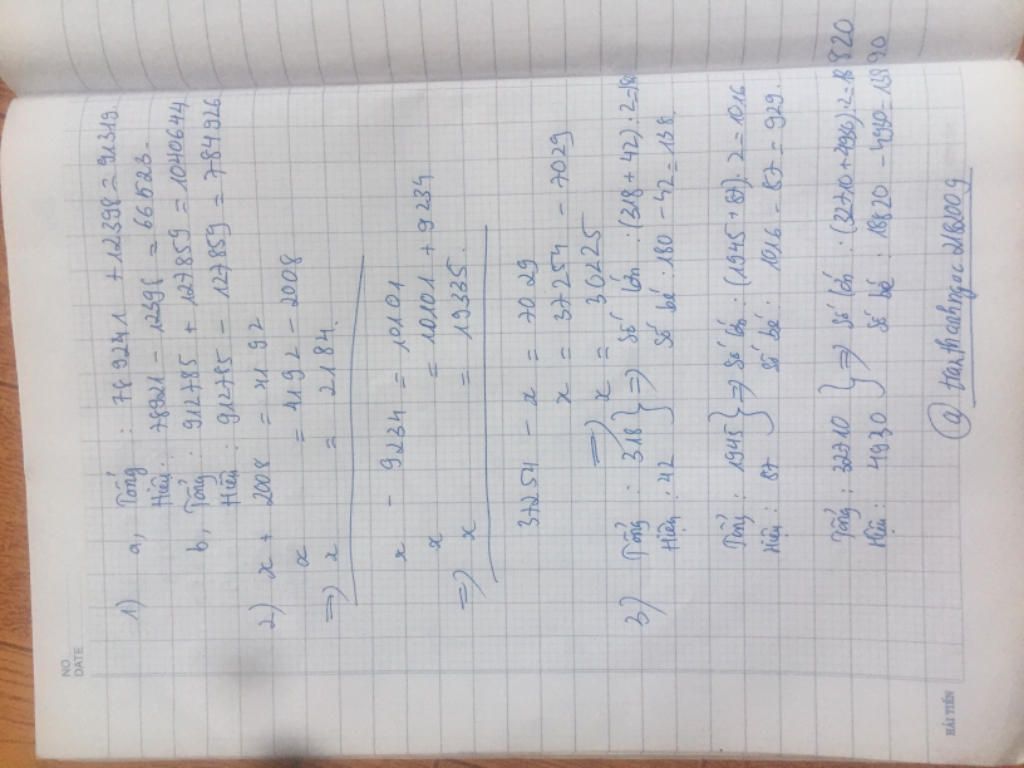 NO
DATE
1) a, Tổng : 78921 + 12398 = 91319.
Hiệu : 78921 - 12398 = 66523.
b, Tổng : 912785 + 127859 = 1040644.
Hiệu : 912785 - 127859 = 784926
2) x + 2008 = 4192
x = 4192 - 2008
=) x = 2184.
x - 9234 = 10101
x = 10101 + 9234
=) x = 19335.
37254 - x = 7029
x = 37254 - 7029
=) x = 30225
3) Tổng : 318 } =) Số lớn : (318 + 42) : 2 = 180
Hiệu : 42 Số bé : 180 - 42 = 138
Tổng : 1945 } =) Số lớn : (1945 + 87) : 2 = 1016
Hiệu : 87 Số bé : 1016 - 87 = 929.
Tổng : 32710 } =) Số lớn : (32710 + 4930) : 2 = 18820
Hiệu : 4930 Số bé : 18820 - 4930 = 13890
HẢI TIẾN